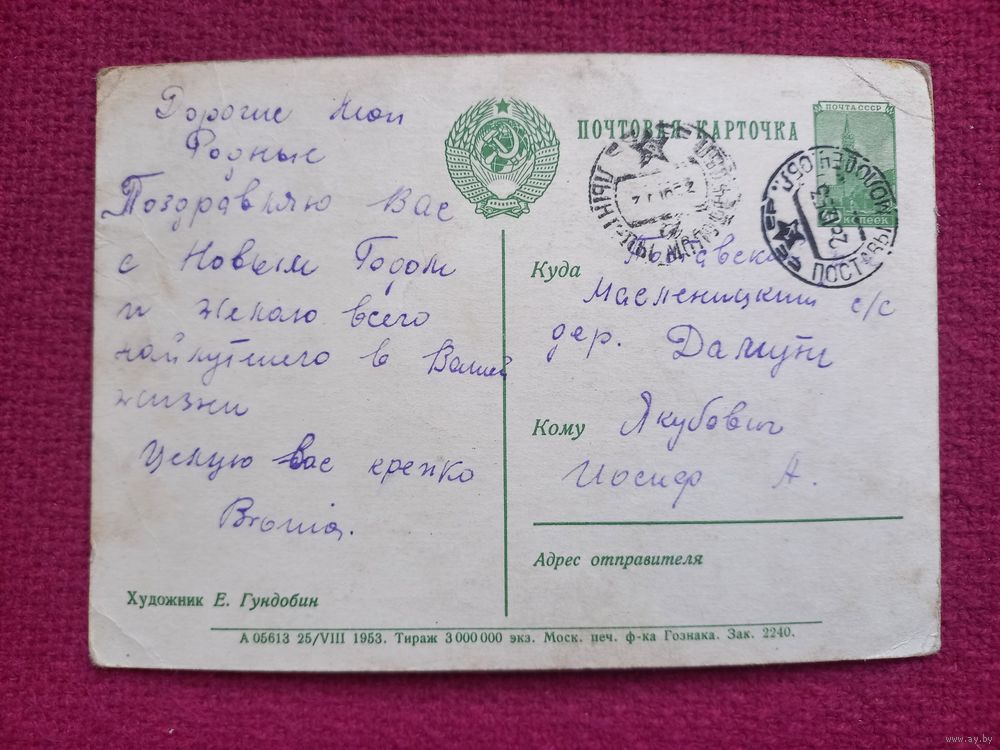 Дорогие мои
Родные
Поздравляю Вас
с Новым Годом
и желаю всего
найлутшего в Вашей
жизни
Целую вас крепко
Bronia.
Художник Е. Гундобин
ПОЧТОВАЯ КАРТОЧКА
ПОЧТА СССР
копеек
МОЛОДЕЧ ОБЛ.
ПОСТАВЫ
Куда
Масленицкий с/с
дер.
Кому Якубович
Иосиф А.
Адрес отправителя
А 05613 25/VIII 1953. Тираж 3 000 000 экз. Моск. печ. ф-ка Гознака. Зак. 2240.
www.ay.by